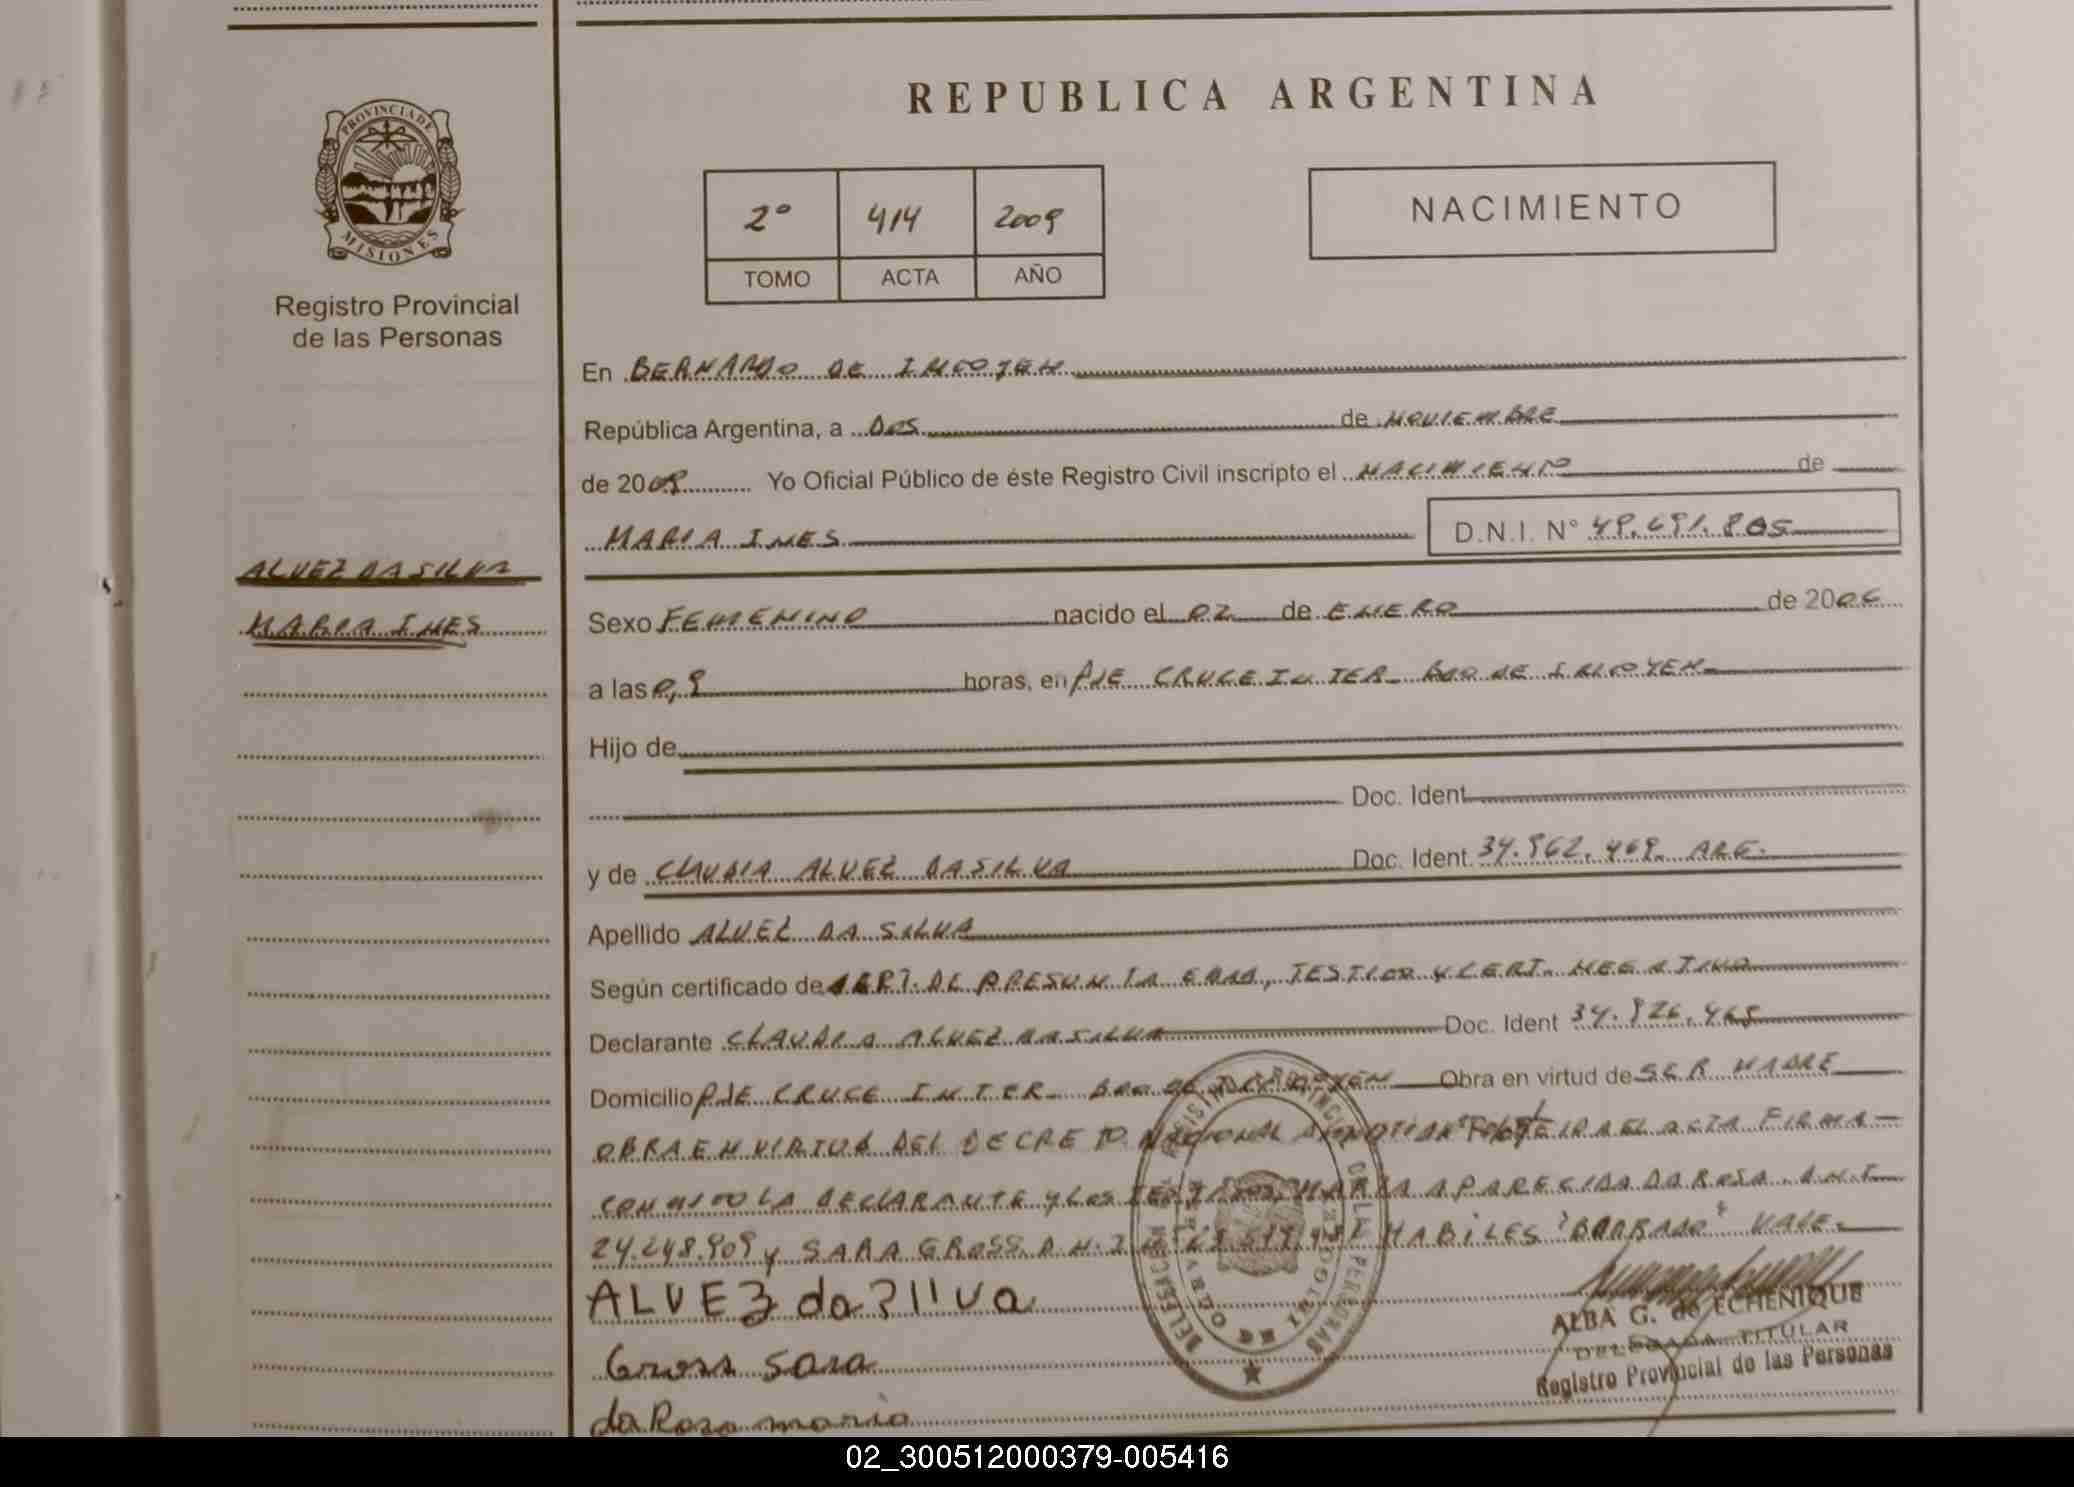 REPUBLICA ARGENTINA
PROVINCIA DE MISIONES
Registro Provincial
de las Personas
2° 414 2009
TOMO ACTA AÑO
NACIMIENTO
En BERNARDO DE IRIGOYEN
República Argentina, a DOS de NOVIEMBRE
de 2009 Yo Oficial Público de éste Registro Civil inscripto el NACIMIENTO de
MARIA INES D.N.I. N°
ALVEZ DA SILVA
MARIA INES
Sexo FEMENINO nacido el 02 de ENERO de 2006
a las 0,9 horas, en PJE CRUCE INTER. BDO DE IRIGOYEN
Hijo de
Doc. Ident.
y de CLAUDIA ALVEZ DA SILVA Doc. Ident. ARG.
Apellido ALVEZ DA SILVA
Según certificado de CERT. DE PRESUNTA EDAD, TESTIGO Y CERT. NEGATIVO
Declarante CLAUDIA ALVEZ DA SILVA Doc. Ident
Domicilio PJE CRUCE INTER. BDO DE IRIGOYEN Obra en virtud de SER MADRE
OBRA EN VIRTUD DEL DECRETO NACIONAL EL ACTA FIRMA
CONMIGO LA DECLARANTE Y LOS TESTIGOS, MARIA APARECIDA DA ROSA D.N.I
24.248.909 y SARA GROSS D.N.I HABILES "BORRADO" VALE.
ALVEZ da Silva
Gross Sara
da Rosa maria
ALBA G. de ECHENIQUE
DELEGADA TITULAR
Registro Provincial de las Personas
02_300512000379-005416